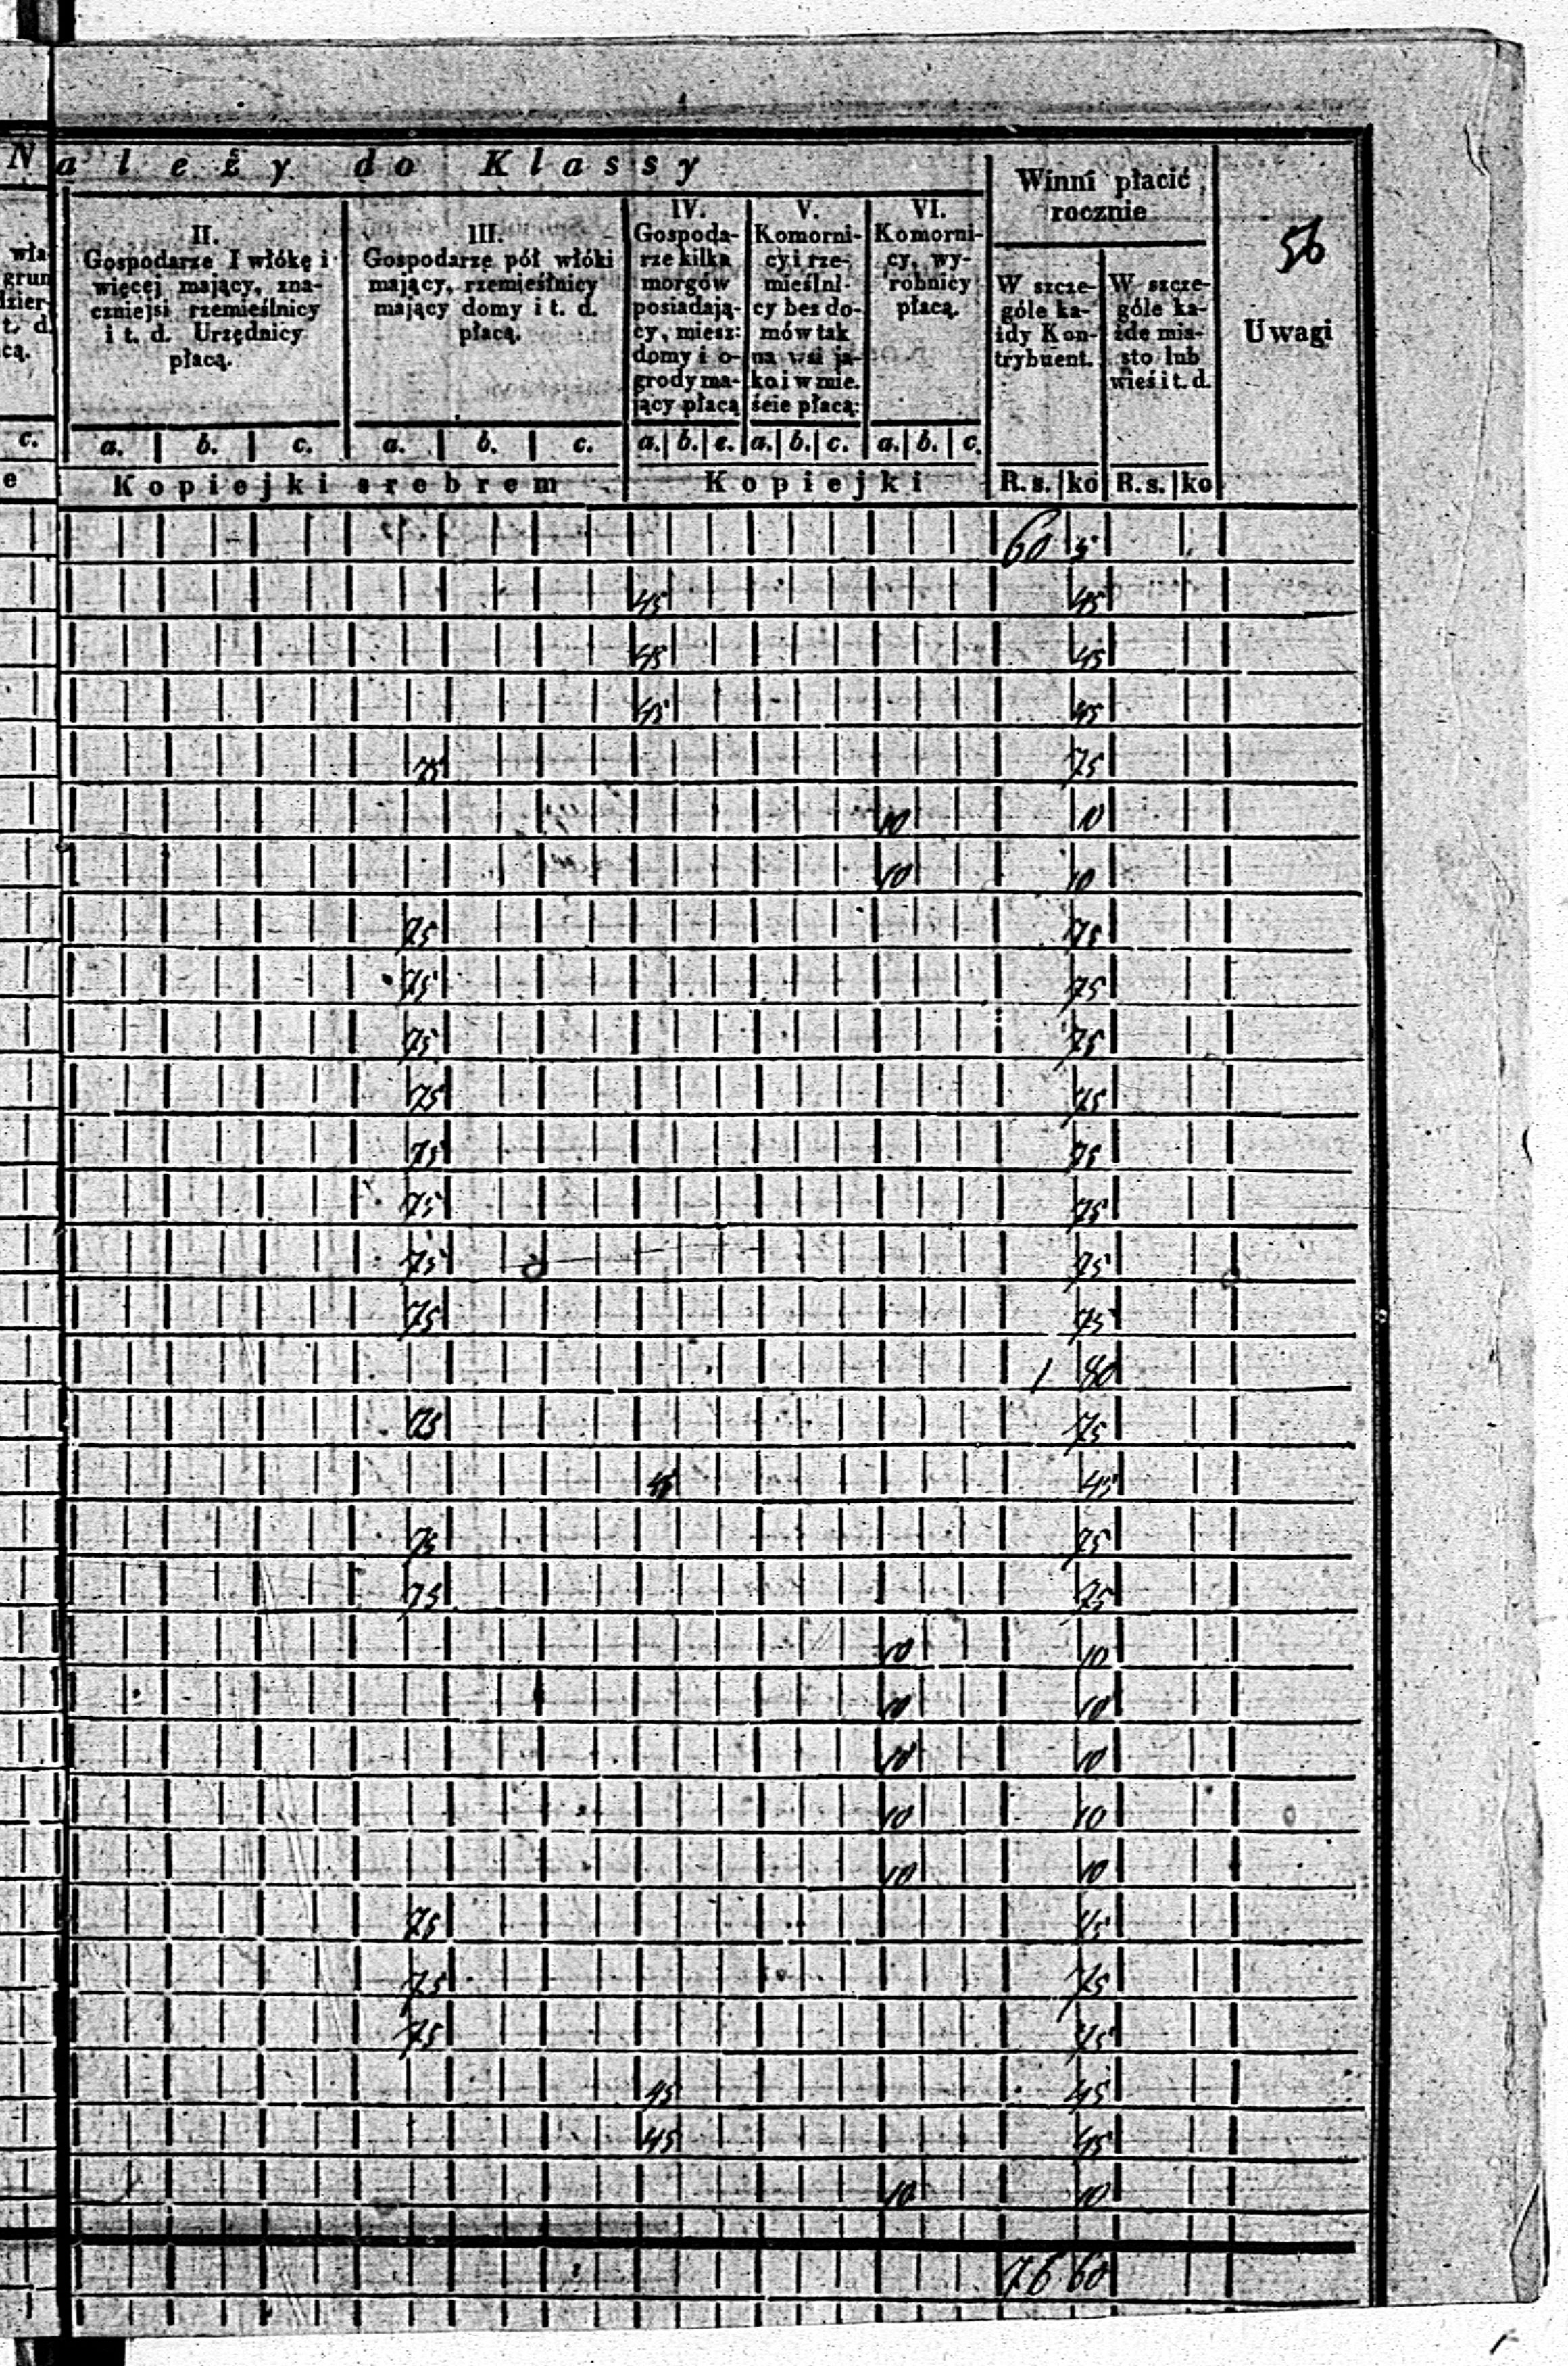 N a l e ż y d o K l a s s y
Winni płacić
rocznie
56
II.
Gospodarze I włókę i
więcej mający, zna-
czniejsi rzemieślnicy
i t. d. Urzędnicy
płacą.
III.
Gospodarze pół włóki
mający, rzemieślnicy
mający domy i t. d.
płacą.
IV.
Gospoda-
rze kilka
morgów
posiadają-
cy, miesz:
domy i o-
grody ma-
jący płacą
V.
Komorni-
cy i rze-
mieślni-
cy bez do-
mów tak
na wsi ja-
ko i w mie.
ście płacą:
VI.
Komorni-
cy, wy-
robnicy
płacą.
W szcze-
góle ka-
żdy Kon-
trybuent.
W szcze-
góle ka-
żde mia-
sto lub
wieś i t. d.
Uwagi
wła
grun
dzier-
t. d.
cą.
c. a. b. c. a. b. c. a. b. c. a. b. c. a. b. c.
e Kopiejki srebrem Kopiejki R. s. ko R. s. ko
60 5
45 45
45 45
45 45
75 75
10 10
10 10
75 75
75 75
75 75
75 75
75 75
75 75
75 75
75 75
1 80
75 75
45 45
75 75
75 75
10 10
10 10
10 10
10 10
10 10
75 75
75 75
75 75
45 45
45 45
10 10
76 60